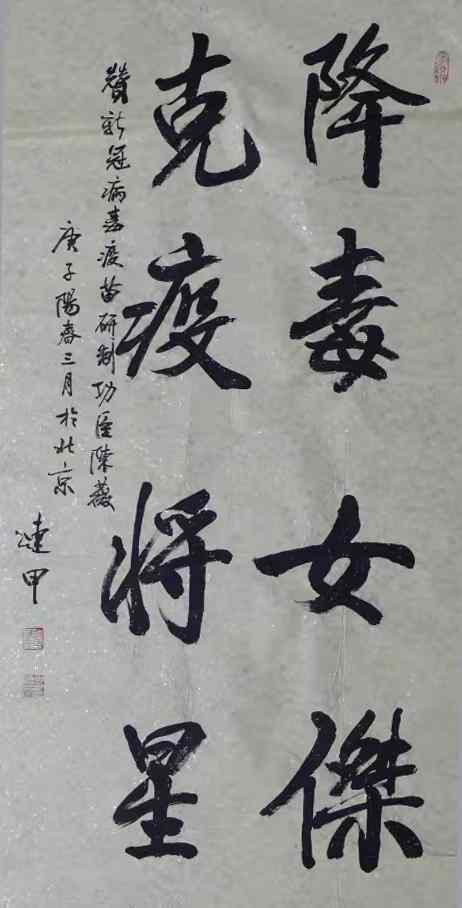 降毒女傑
克疫將星
贊新冠病毒疫苗研制功臣陳薇
庚子陽春三月於北京
連甲